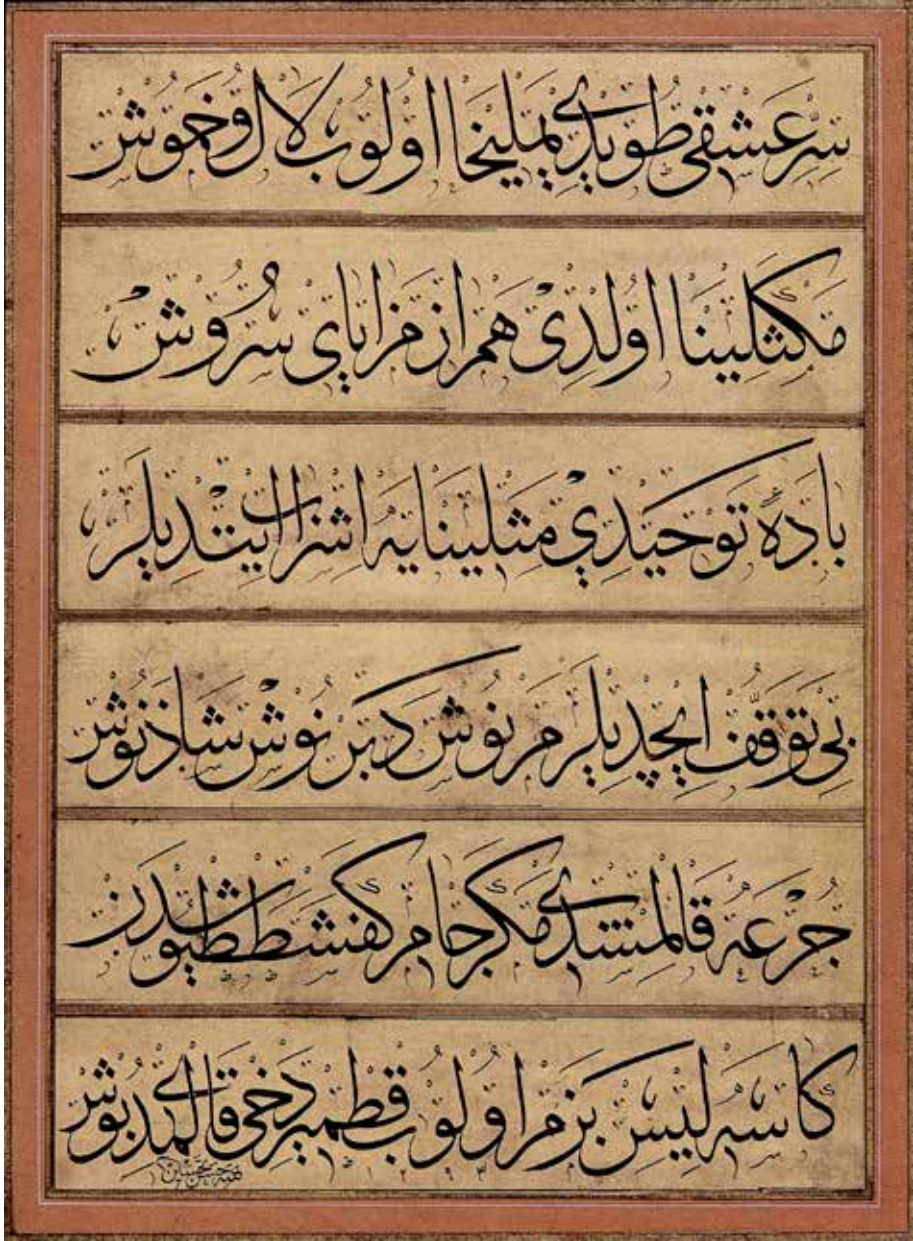 سر عشقی طویدی یملیخا اولوب لال و خموش
مكثلینا اولدی همراز مزایای سروش
بادهٔ توحیدی مثلینایه اشراب ایتدیلر
بی توقف ایچدیلر مرنوش دبرنوش شاذنوش
جرعه قالمشدی مكر جام كفشططیوشدن
كاسه لیس بزم اولوب قطمیر دخی قالمدی بوش
حسن تحسین ١٢٩٣